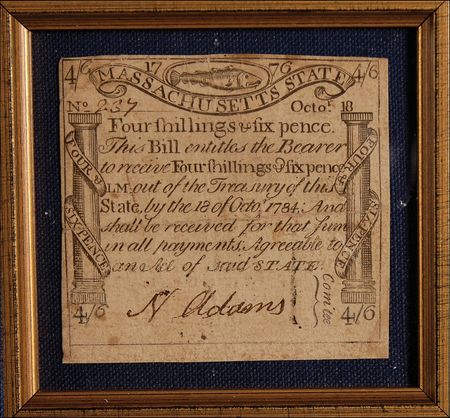 4/6 17 76 4/6
MASSACHUSETTS STATE
No 237 Octor. 18
Four ſhillings & ſix pence.
This Bill entitles the Bearer
to receive Four ſhillings & ſix pence
LM. out of the Treaſury of this
State, by the 18 of Octo. 1784. And
ſhall be received for that ſum
in all payments, Agreeable to
an Act of said STATE.
FOUR &
SIX-PENCE
FOUR &
SIX-PENCE
N Adams
Comtee
4/6 4/6